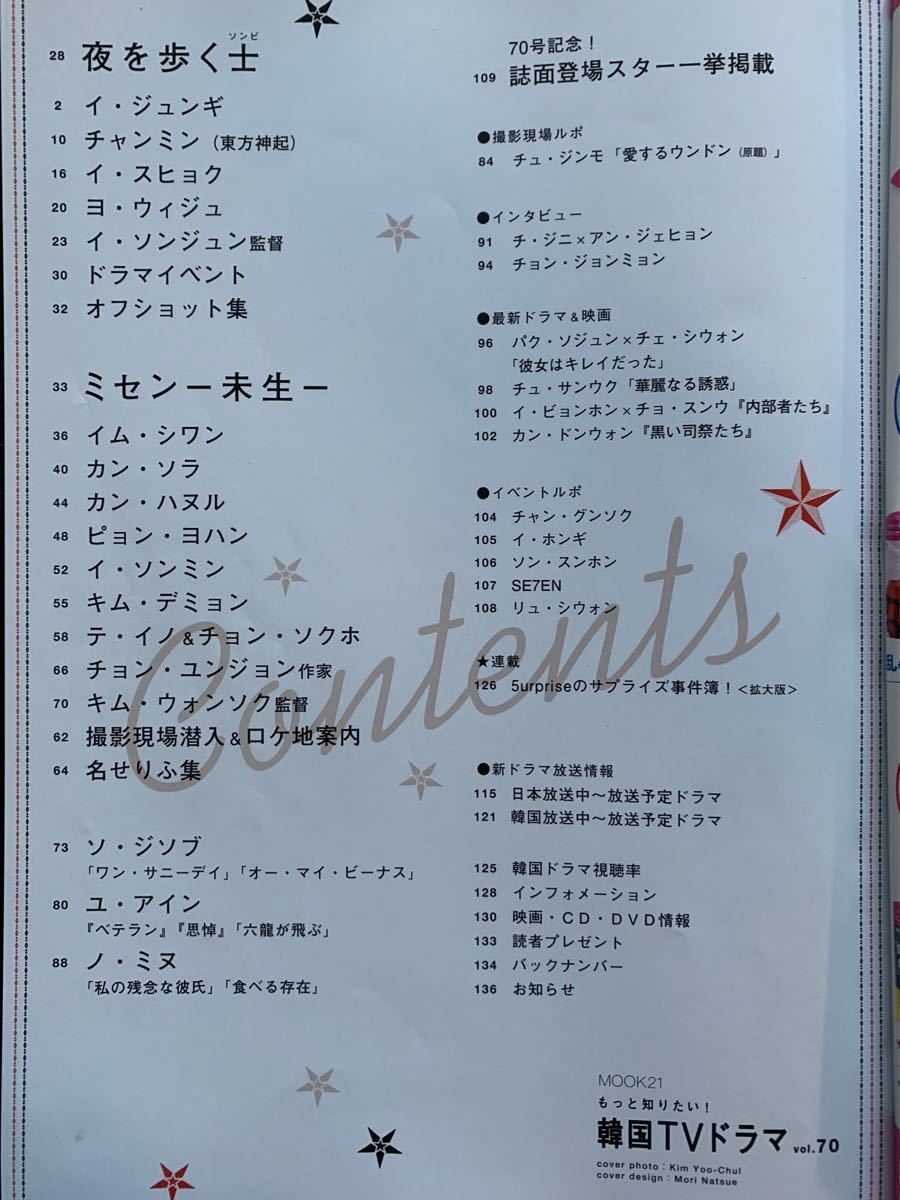 ソンビ
28 夜を歩く士
2 イ・ジュンギ
10 チャンミン（東方神起）
16 イ・スヒョク
20 ヨ・ウィジュ
23 イ・ソンジュン監督
30 ドラマイベント
32 オフショット集
33 ミセンー未生ー
36 イム・シワン
40 カン・ソラ
44 カン・ハヌル
48 ピョン・ヨハン
52 イ・ソンミン
55 キム・デミョン
58 テ・イノ&チョン・ソクホ
66 チョン・ユンジョン作家
70 キム・ウォンソク監督
62 撮影現場潜入&ロケ地案内
64 名せりふ集
73 ソ・ジソブ
「ワン・サニーデイ」「オー・マイ・ビーナス」
80 ユ・アイン
『ベテラン』『思悼』「六龍が飛ぶ」
88 ノ・ミヌ
「私の残念な彼氏」「食べる存在」
Contents
70号記念！
109 誌面登場スター一挙掲載
●撮影現場ルポ
84 チュ・ジンモ「愛するウンドン（原題）」
●インタビュー
91 チ・ジニ×アン・ジェヒョン
94 チョン・ジョンミョン
●最新ドラマ&映画
96 パク・ソジュン×チェ・シウォン
「彼女はキレイだった」
98 チュ・サンウク「華麗なる誘惑」
100 イ・ビョンホン×チョ・スンウ『内部者たち』
102 カン・ドンウォン『黒い司祭たち』
●イベントルポ
104 チャン・グンソク
105 イ・ホンギ
106 ソン・スンホン
107 SE7EN
108 リュ・シウォン
★連載
126 5urpriseのサプライズ事件簿！＜拡大版＞
●新ドラマ放送情報
115 日本放送中〜放送予定ドラマ
121 韓国放送中〜放送予定ドラマ
125 韓国ドラマ視聴率
128 インフォメーション
130 映画・CD・DVD情報
133 読者プレゼント
134 バックナンバー
136 お知らせ
MOOK21
もっと知りたい！
韓国TVドラマ vol.70
cover photo : Kim Yoo-Chul
cover design : Mori Natsue
乱